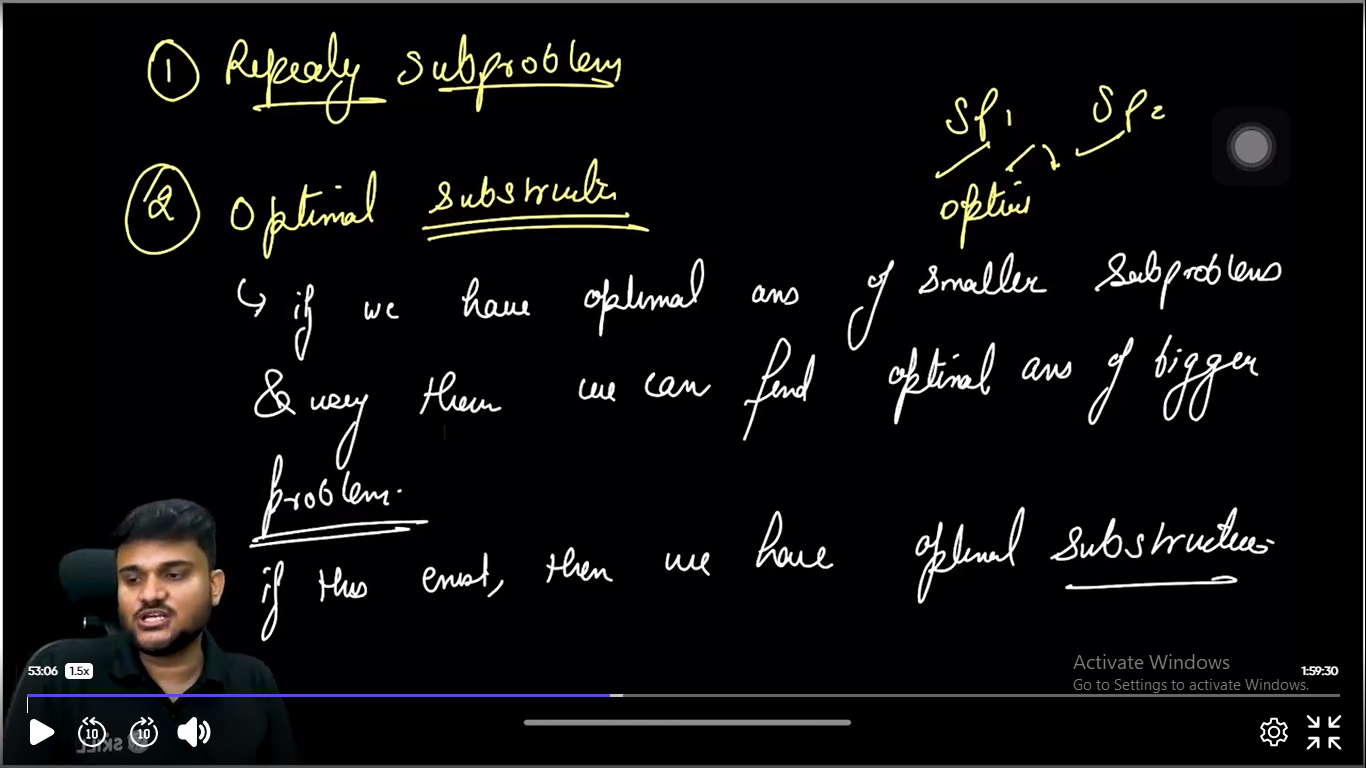 ① Repeaty Subproblem
Sp1 Sp2
② Optimal substructu
option
↳ if we have optimal ans of smaller Subproblems
& usey them we can find optimal ans of bigger
problem.
if this exist, then we have optimal substructure
53:06 1.5x 1:59:30
Activate Windows
Go to Settings to activate Windows.
10 10
SKILL